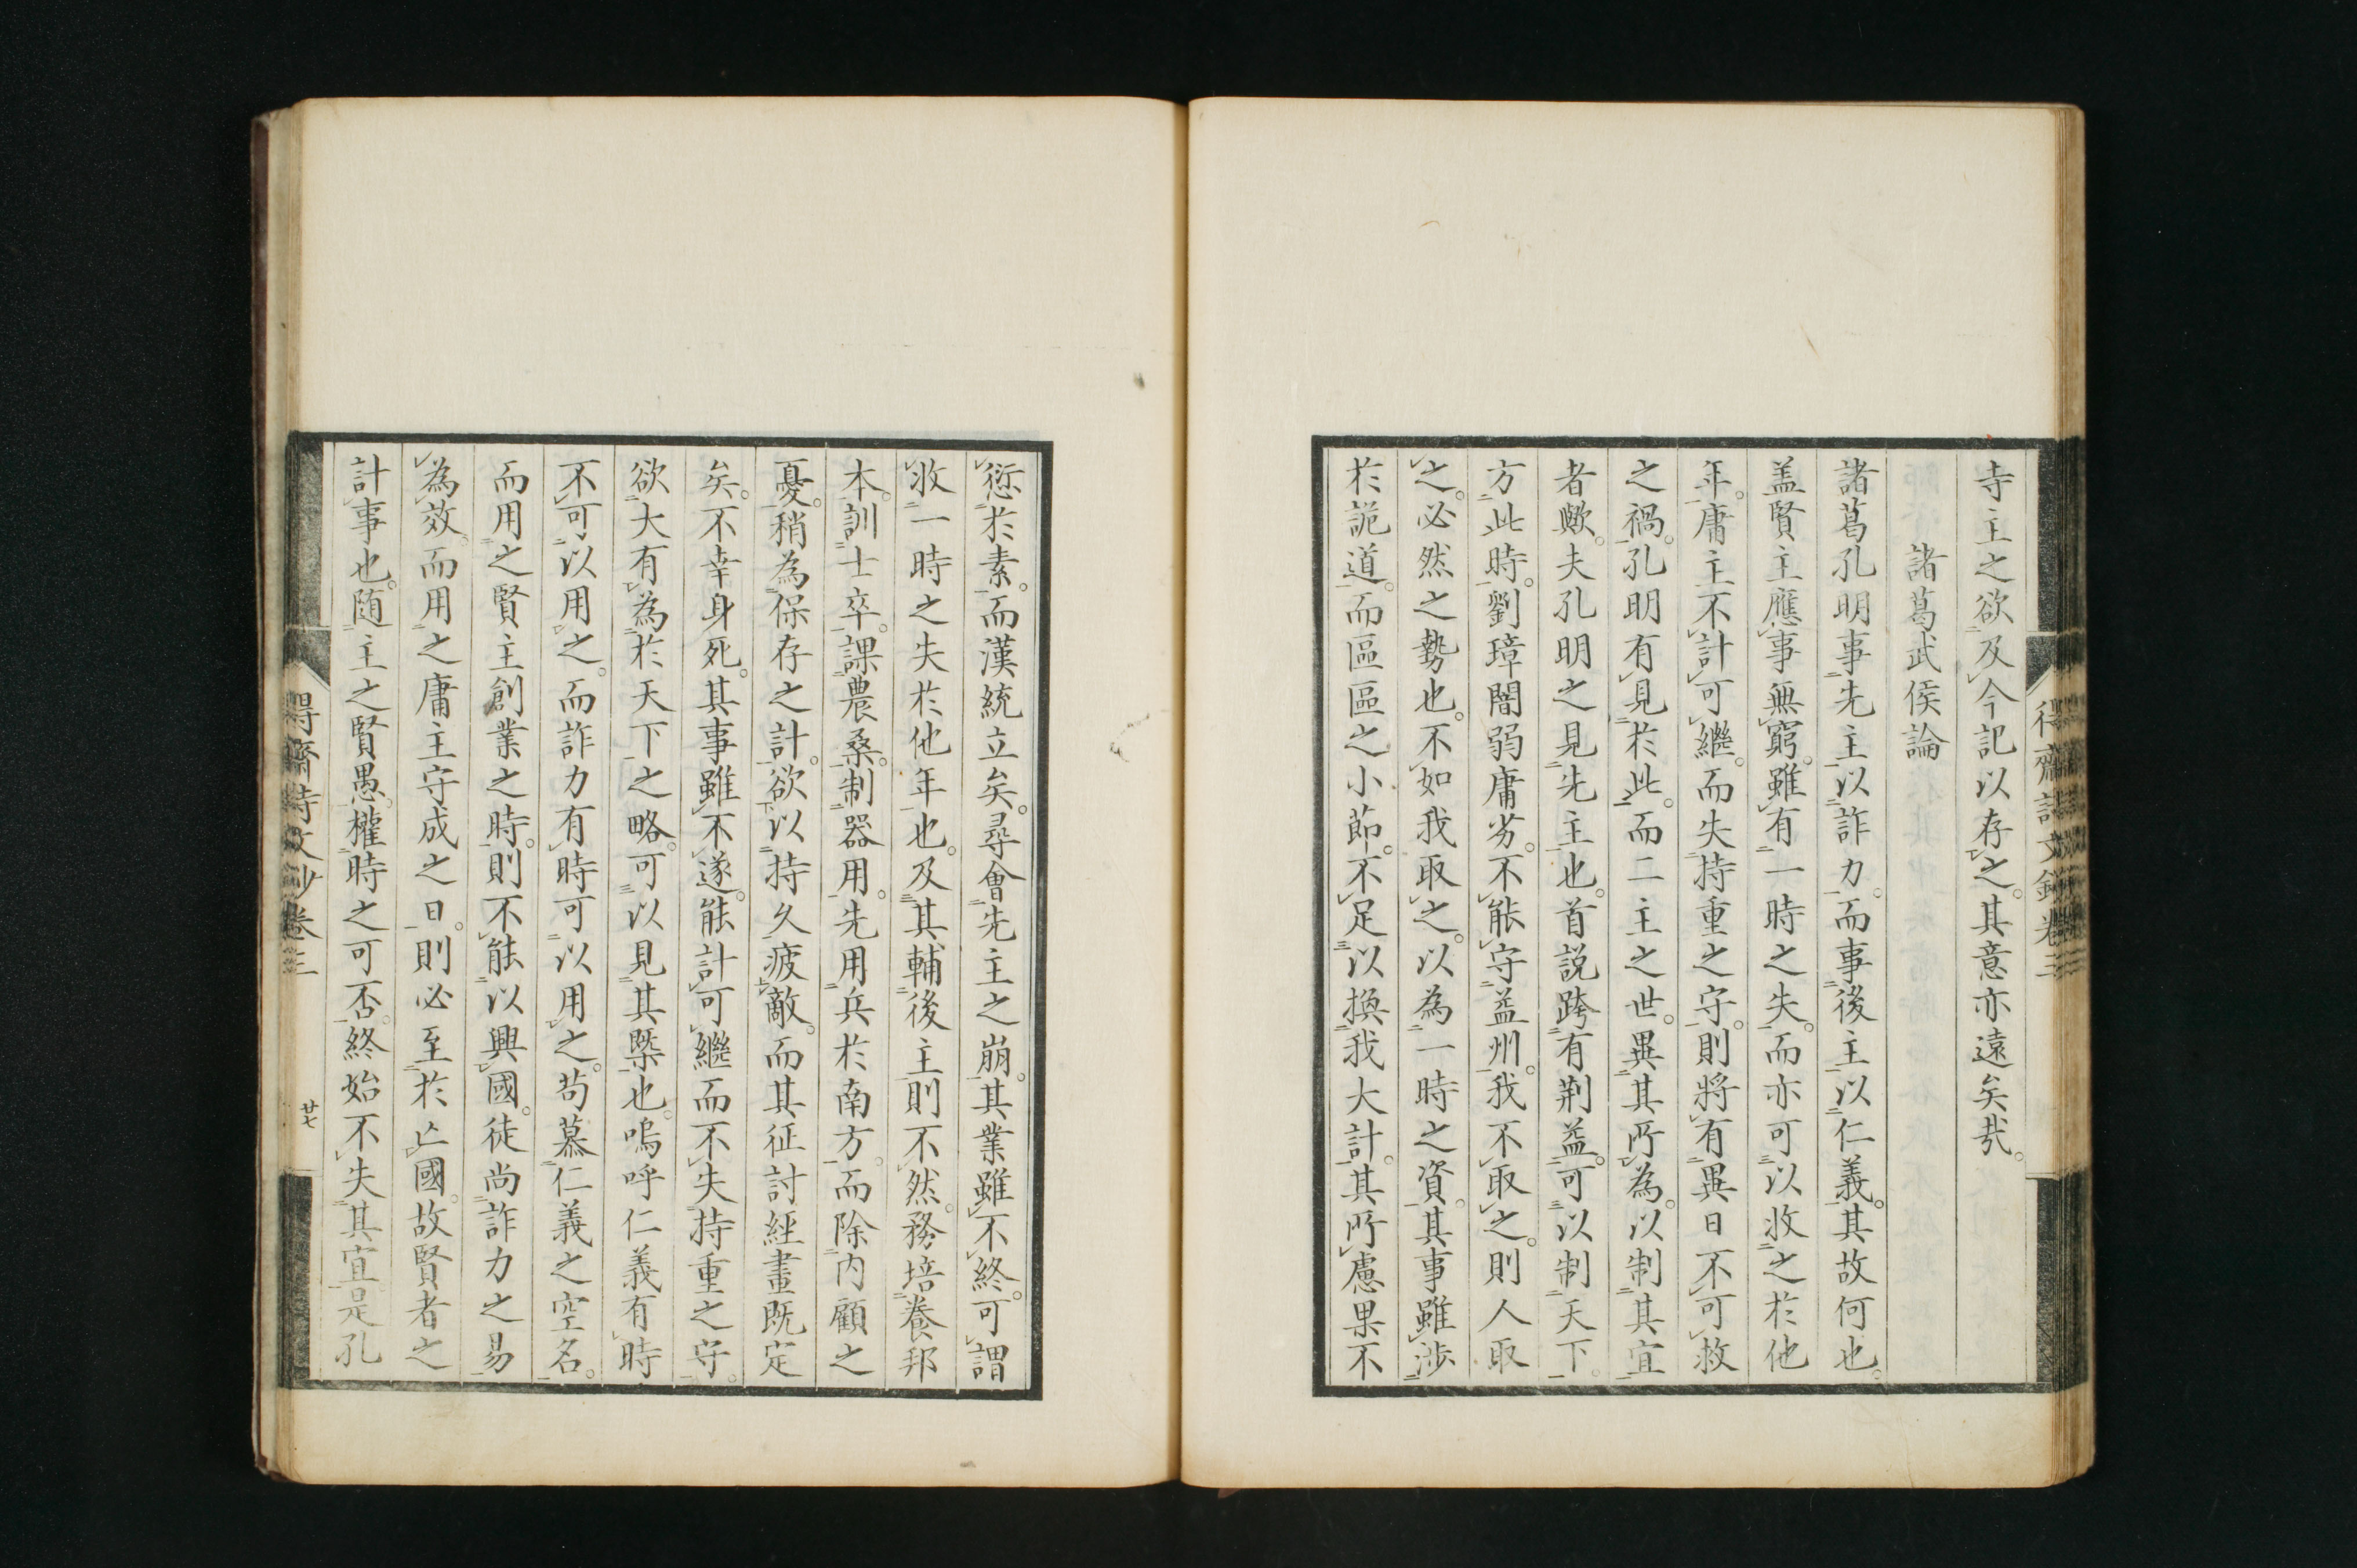 寺主之欲及今記以存之。其意亦遠矣㢤。
諸葛武侯論
諸葛孔明事先主以詐力。而事後主以仁義。其故何也。
盖賢主應事無窮。雖有一時之失。而亦可以收之於他
年。庸主不計可繼。而失持重之守。則將有異日不可救
之禍。孔明有見於此。而二主之世。異其所為。以制其宜
者歟。夫孔明之見先主也。首説跨有荆益。可以制天下。
方此時。劉璋闇弱庸劣。不能守益州。我不取之。則人取
之。必然之勢也。不如我取之。以為一時之資。其事雖涉
於詭道。而區區之小節。不足以換我大計。其所慮果不
愆於素。而漢統立矣。尋會先主之崩。其業雖不終。可謂
收一時之失於他年也。及其輔後主則不然。務培養邦
本。訓士卒。課農桑。制器用。先用兵於南方。而除内顧之
憂。稍為保存之計。欲以持久疲敵。而其征討經畫既定
矣。不幸身死。其事雖不遂。能計可繼而不失持重之守。
欲大有為於天下之略。可以見其槩也。嗚呼仁義有時
不可以用之。而詐力有時可以用之。苟慕仁義之空名。
而用之賢主創業之時。則不能以興國。徒尚詐力之易
為效。而用之庸主守成之日。則必至於亡國。故賢者之
計事也。随主之賢愚。權時之可否。終始不失其宜。是孔
得齋詩文鈔卷三
廿七